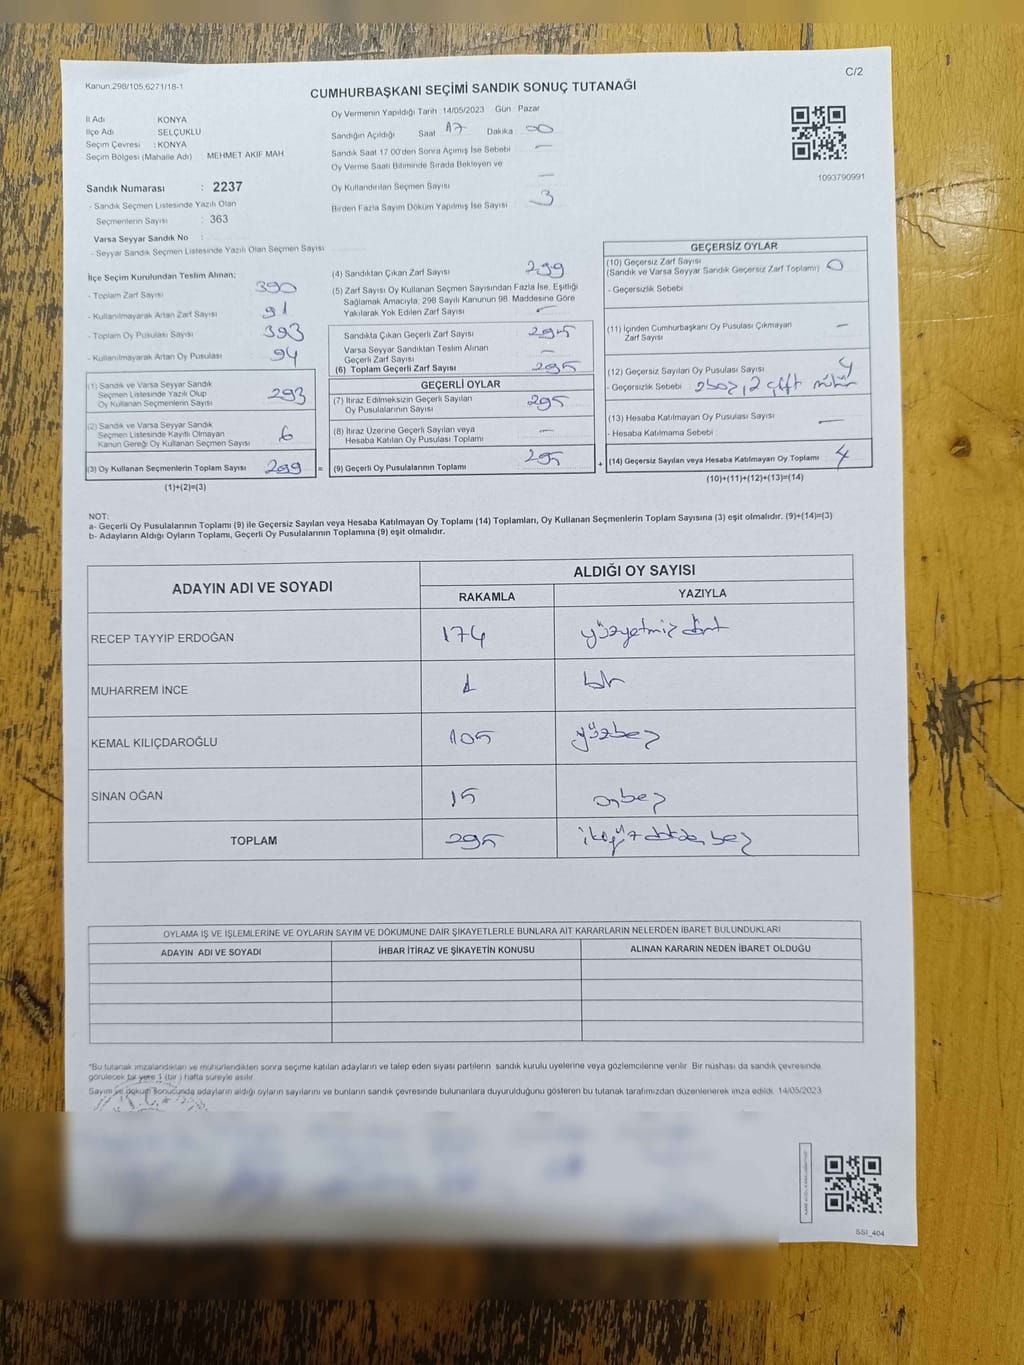 Kanun.298/105,6271/18-1
C/2
CUMHURBAŞKANI SEÇİMİ SANDIK SONUÇ TUTANAĞI
İl Adı KONYA
İlçe Adı SELÇUKLU
Seçim Çevresi : KONYA
Seçim Bölgesi (Mahalle Adı) MEHMET AKİF MAH
Sandık Numarası : 2237
- Sandık Seçmen Listesinde Yazılı Olan
Seçmenlerin Sayısı : 363
Varsa Seyyar Sandık No :
- Seyyar Sandık Seçmen Listesinde Yazılı Olan Seçmen Sayısı
Oy Vermenin Yapıldığı Tarih : 14/05/2023 Gün : Pazar
Sandığın Açıldığı Saat 17 Dakika 00
Sandık Saat 17.00'den Sonra Açılmış İse Sebebi —
Oy Verme Saati Bitiminde Sırada Bekleyen ve
Oy Kullandırılan Seçmen Sayısı —
Birden Fazla Sayım Döküm Yapılmış İse Sayısı 3
1093790991
İlçe Seçim Kurulundan Teslim Alınan;
- Toplam Zarf Sayısı 390
- Kullanılmayarak Artan Zarf Sayısı 91
- Toplam Oy Pusulası Sayısı 393
- Kullanılmayarak Artan Oy Pusulası 94
(1) Sandık ve Varsa Seyyar Sandık
Seçmen Listesinde Yazılı Olup
Oy Kullanan Seçmenlerin Sayısı 293
(2) Sandık ve Varsa Seyyar Sandık
Seçmen Listesinde Kayıtlı Olmayan
Kanun Gereği Oy Kullanan Seçmen Sayısı 6
(3) Oy Kullanan Seçmenlerin Toplam Sayısı 299 =
(1)+(2)=(3)
(4) Sandıktan Çıkan Zarf Sayısı 299
(5) Zarf Sayısı Oy Kullanan Seçmen Sayısından Fazla İse, Eşitliği
Sağlamak Amacıyla, 298 Sayılı Kanunun 98. Maddesine Göre
Yakılarak Yok Edilen Zarf Sayısı —
Sandıkta Çıkan Geçerli Zarf Sayısı 295
Varsa Seyyar Sandıktan Teslim Alınan
Geçerli Zarf Sayısı —
(6) Toplam Geçerli Zarf Sayısı 295
GEÇERLİ OYLAR
(7) İtiraz Edilmeksizin Geçerli Sayılan
Oy Pusulalarının Sayısı 295
(8) İtiraz Üzerine Geçerli Sayılan veya
Hesaba Katılan Oy Pusulası Toplamı —
(9) Geçerli Oy Pusulalarının Toplamı 295 +
GEÇERSİZ OYLAR
(10) Geçersiz Zarf Sayısı
(Sandık ve Varsa Seyyar Sandık Geçersiz Zarf Toplamı) 0
- Geçersizlik Sebebi :
(11) İçinden Cumhurbaşkanı Oy Pusulası Çıkmayan
Zarf Sayısı —
(12) Geçersiz Sayılan Oy Pusulası Sayısı 4
- Geçersizlik Sebebi 2 boş, 2 çift mühür
(13) Hesaba Katılmayan Oy Pusulası Sayısı —
- Hesaba Katılmama Sebebi :
(14) Geçersiz Sayılan veya Hesaba Katılmayan Oy Toplamı 4
(10)+(11)+(12)+(13)=(14)
NOT:
a- Geçerli Oy Pusulalarının Toplamı (9) ile Geçersiz Sayılan veya Hesaba Katılmayan Oy Toplamı (14) Toplamları, Oy Kullanan Seçmenlerin Toplam Sayısına (3) eşit olmalıdır. (9)+(14)=(3)
b- Adayların Aldığı Oyların Toplamı, Geçerli Oy Pusulalarının Toplamına (9) eşit olmalıdır.
ADAYIN ADI VE SOYADI
ALDIĞI OY SAYISI
RAKAMLA YAZIYLA
RECEP TAYYİP ERDOĞAN 174 yüzyetmiş dört
MUHARREM İNCE 1 bir
KEMAL KILIÇDAROĞLU 105 yüzbeş
SİNAN OĞAN 15 onbeş
TOPLAM 295 ikiyüz doksan beş
OYLAMA İŞ VE İŞLEMLERİNE VE OYLARIN SAYIM VE DÖKÜMÜNE DAİR ŞİKAYETLERLE BUNLARA AİT KARARLARIN NELERDEN İBARET BULUNDUKLARI
ADAYIN ADI VE SOYADI İHBAR İTİRAZ VE ŞİKAYETİN KONUSU ALINAN KARARIN NEDEN İBARET OLDUĞU
*Bu tutanak imzalandıktan ve mühürlendikten sonra seçime katılan adayların ve talep eden siyasi partilerin sandık kurulu üyelerine veya gözlemcilerine verilir. Bir nüshası da sandık çevresinde
görülecek bir yere 1 (bir) hafta süreyle asılır.
Sayım ve döküm sonucunda adayların aldığı oyların sayılarını ve bunların sandık çevresinde bulunanlara duyurulduğunu gösteren bu tutanak tarafımızdan düzenlenerek imza edildi. 14/05/2023
SSI_404